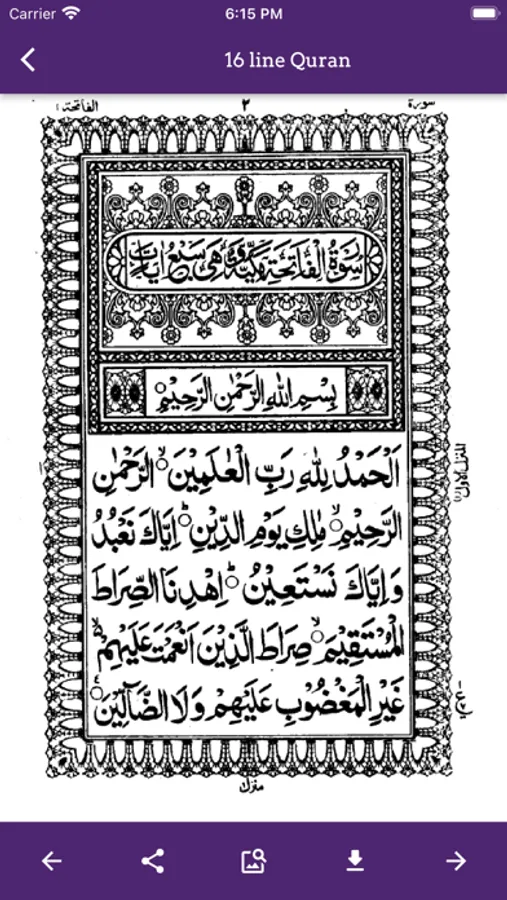 Carrier 6:15 PM
16 line Quran
سورة ٢ الفاتحة ١
سُوْرَةُ الْفَاتِحَةِ مَكِّيَّةٌ وَّهِیَ سَبْعُ اٰیَاتٍ
بِسْمِ اللّٰهِ الرَّحْمٰنِ الرَّحِیْمِ
اَلْحَمْدُ لِلّٰهِ رَبِّ الْعٰلَمِیْنَ ۙ الرَّحْمٰنِ
الرَّحِیْمِ ۙ مٰلِكِ یَوْمِ الدِّیْنِ ؕ اِیَّاكَ نَعْبُدُ
وَاِیَّاكَ نَسْتَعِیْنُ ؕ اِهْدِنَا الصِّرَاطَ
الْمُسْتَقِیْمَ ۙ صِرَاطَ الَّذِیْنَ اَنْعَمْتَ عَلَیْهِمْ ۙ
غَیْرِ الْمَغْضُوْبِ عَلَیْهِمْ وَلَا الضَّآلِّیْنَ
المنزل الاول
منزل